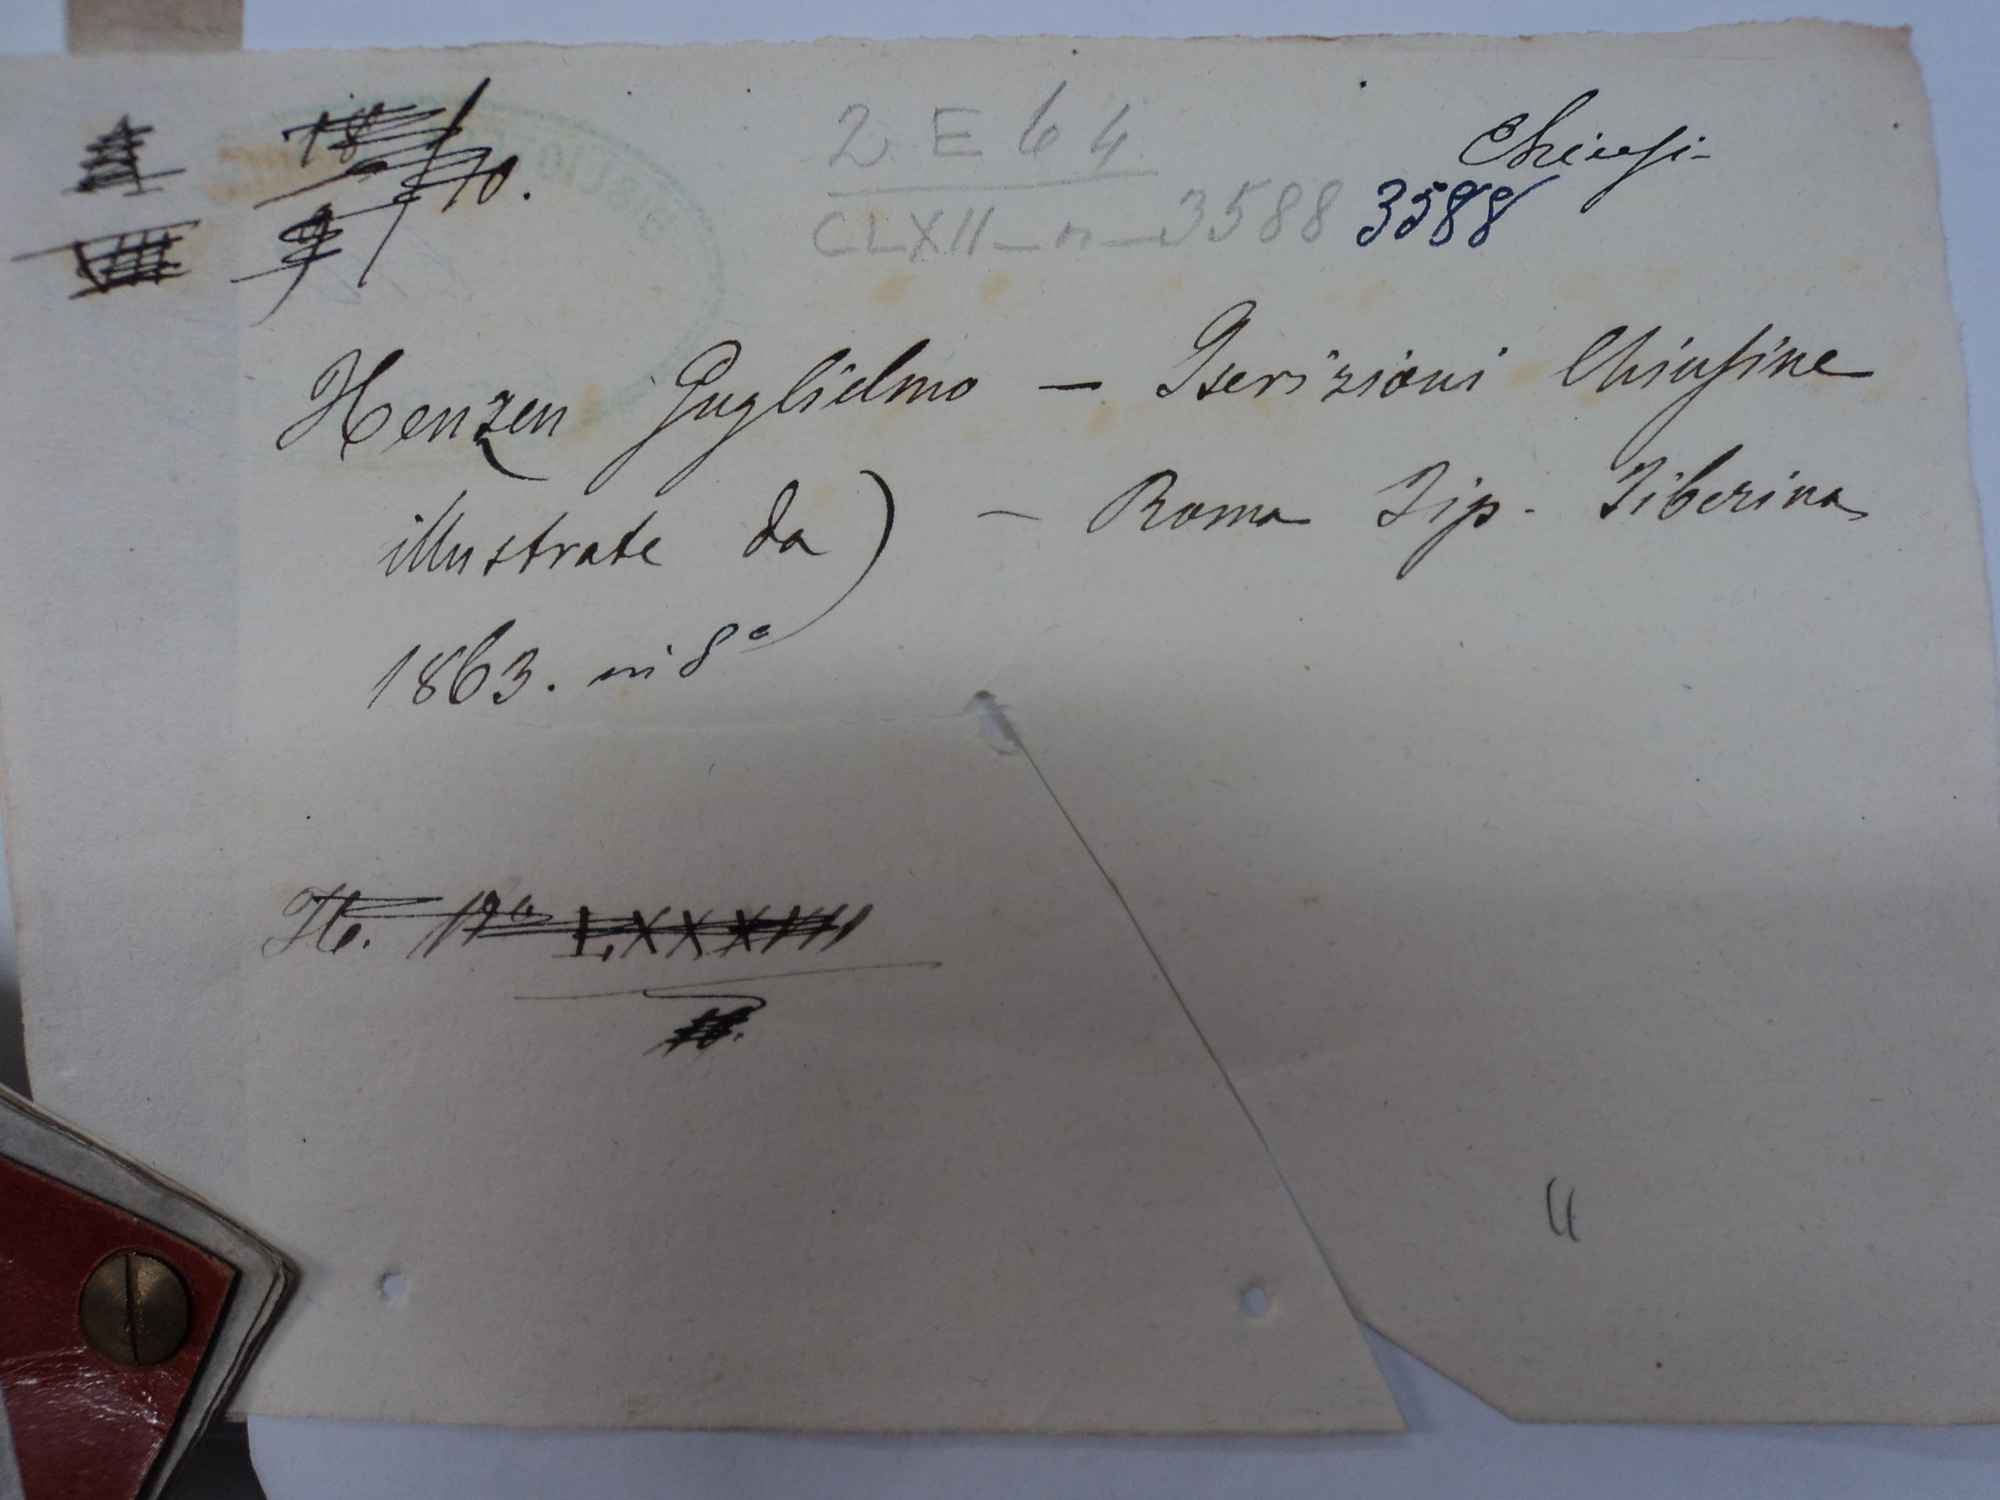 2 E 64
Chiusi-
CLXII - n - 3588 3588
Henzen Guglielmo - Iscrizioni Chiusine
illustrate da) - Roma Tip. Tiberina
1863. in 8º
LXXXVIII